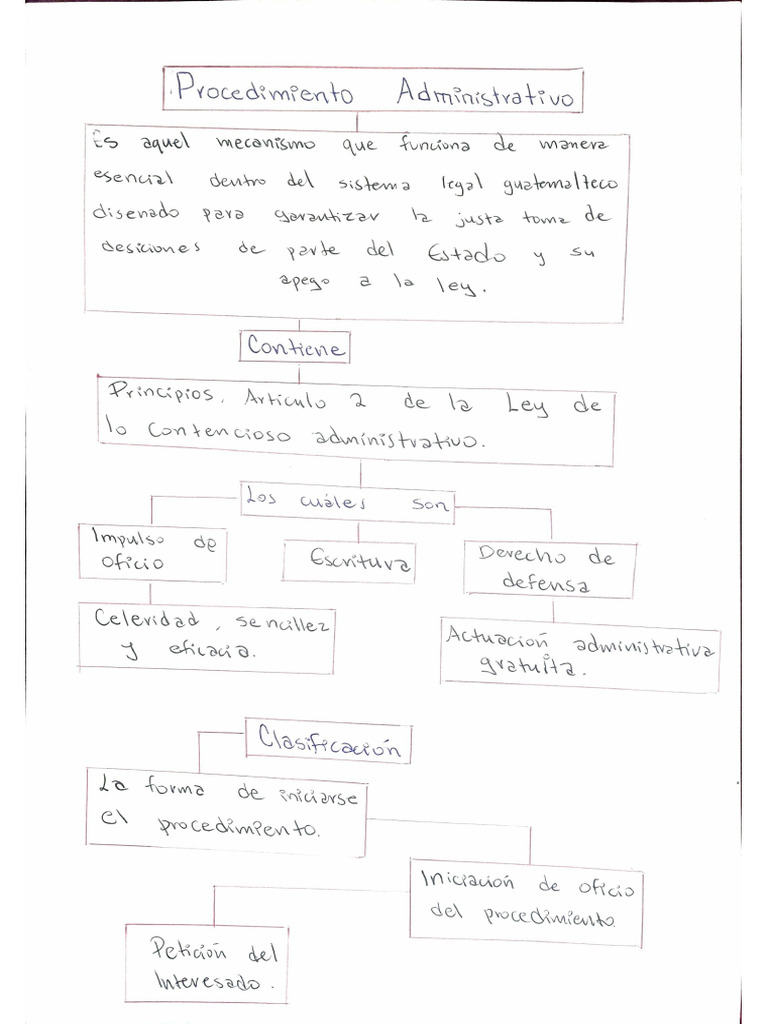 Procedimiento Administrativo
Es aquel mecanismo que funciona de manera
esencial dentro del sistema legal guatemalteco
disenado para garantizar la justa toma de
desiciones de parte del Estado y su
apego a la ley.
Contiene
Principios, Articulo 2 de la Ley de
lo contencioso administrativo.
Los cuáles son
Impulso de
oficio
Escritura
Derecho de
defensa
Celeridad, sencillez
y eficacia.
Actuación administrativa
gratuita.
Clasificación
La forma de iniciarse
el procedimiento.
Iniciación de oficio
del procedimiento.
Petición del
Interesado.